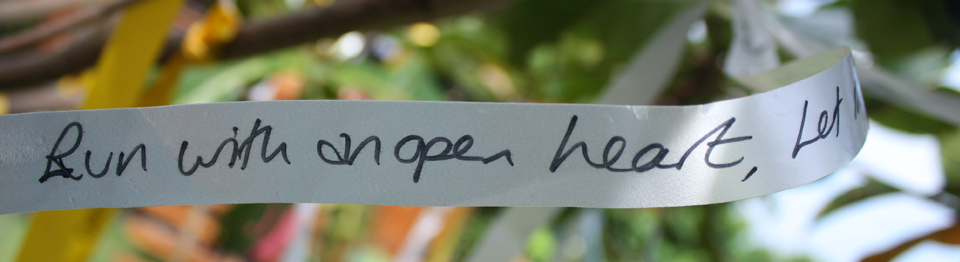 Run with an open heart, Let